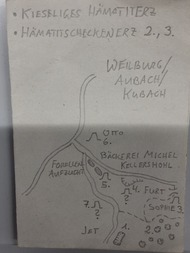 • KIESELIGES HÄMATITERZ
• HÄMATITSCHECKENERZ 2., 3.
WEILBURG/
AUBACH/
KUBACH
OTTO
6.
BÄCKEREI MICHEL
KELLERSMOHL
FORELLEN
AUFZUCHT
5.
4.
FURT
?
SOPHIE 3.
7.
?
1.
2.